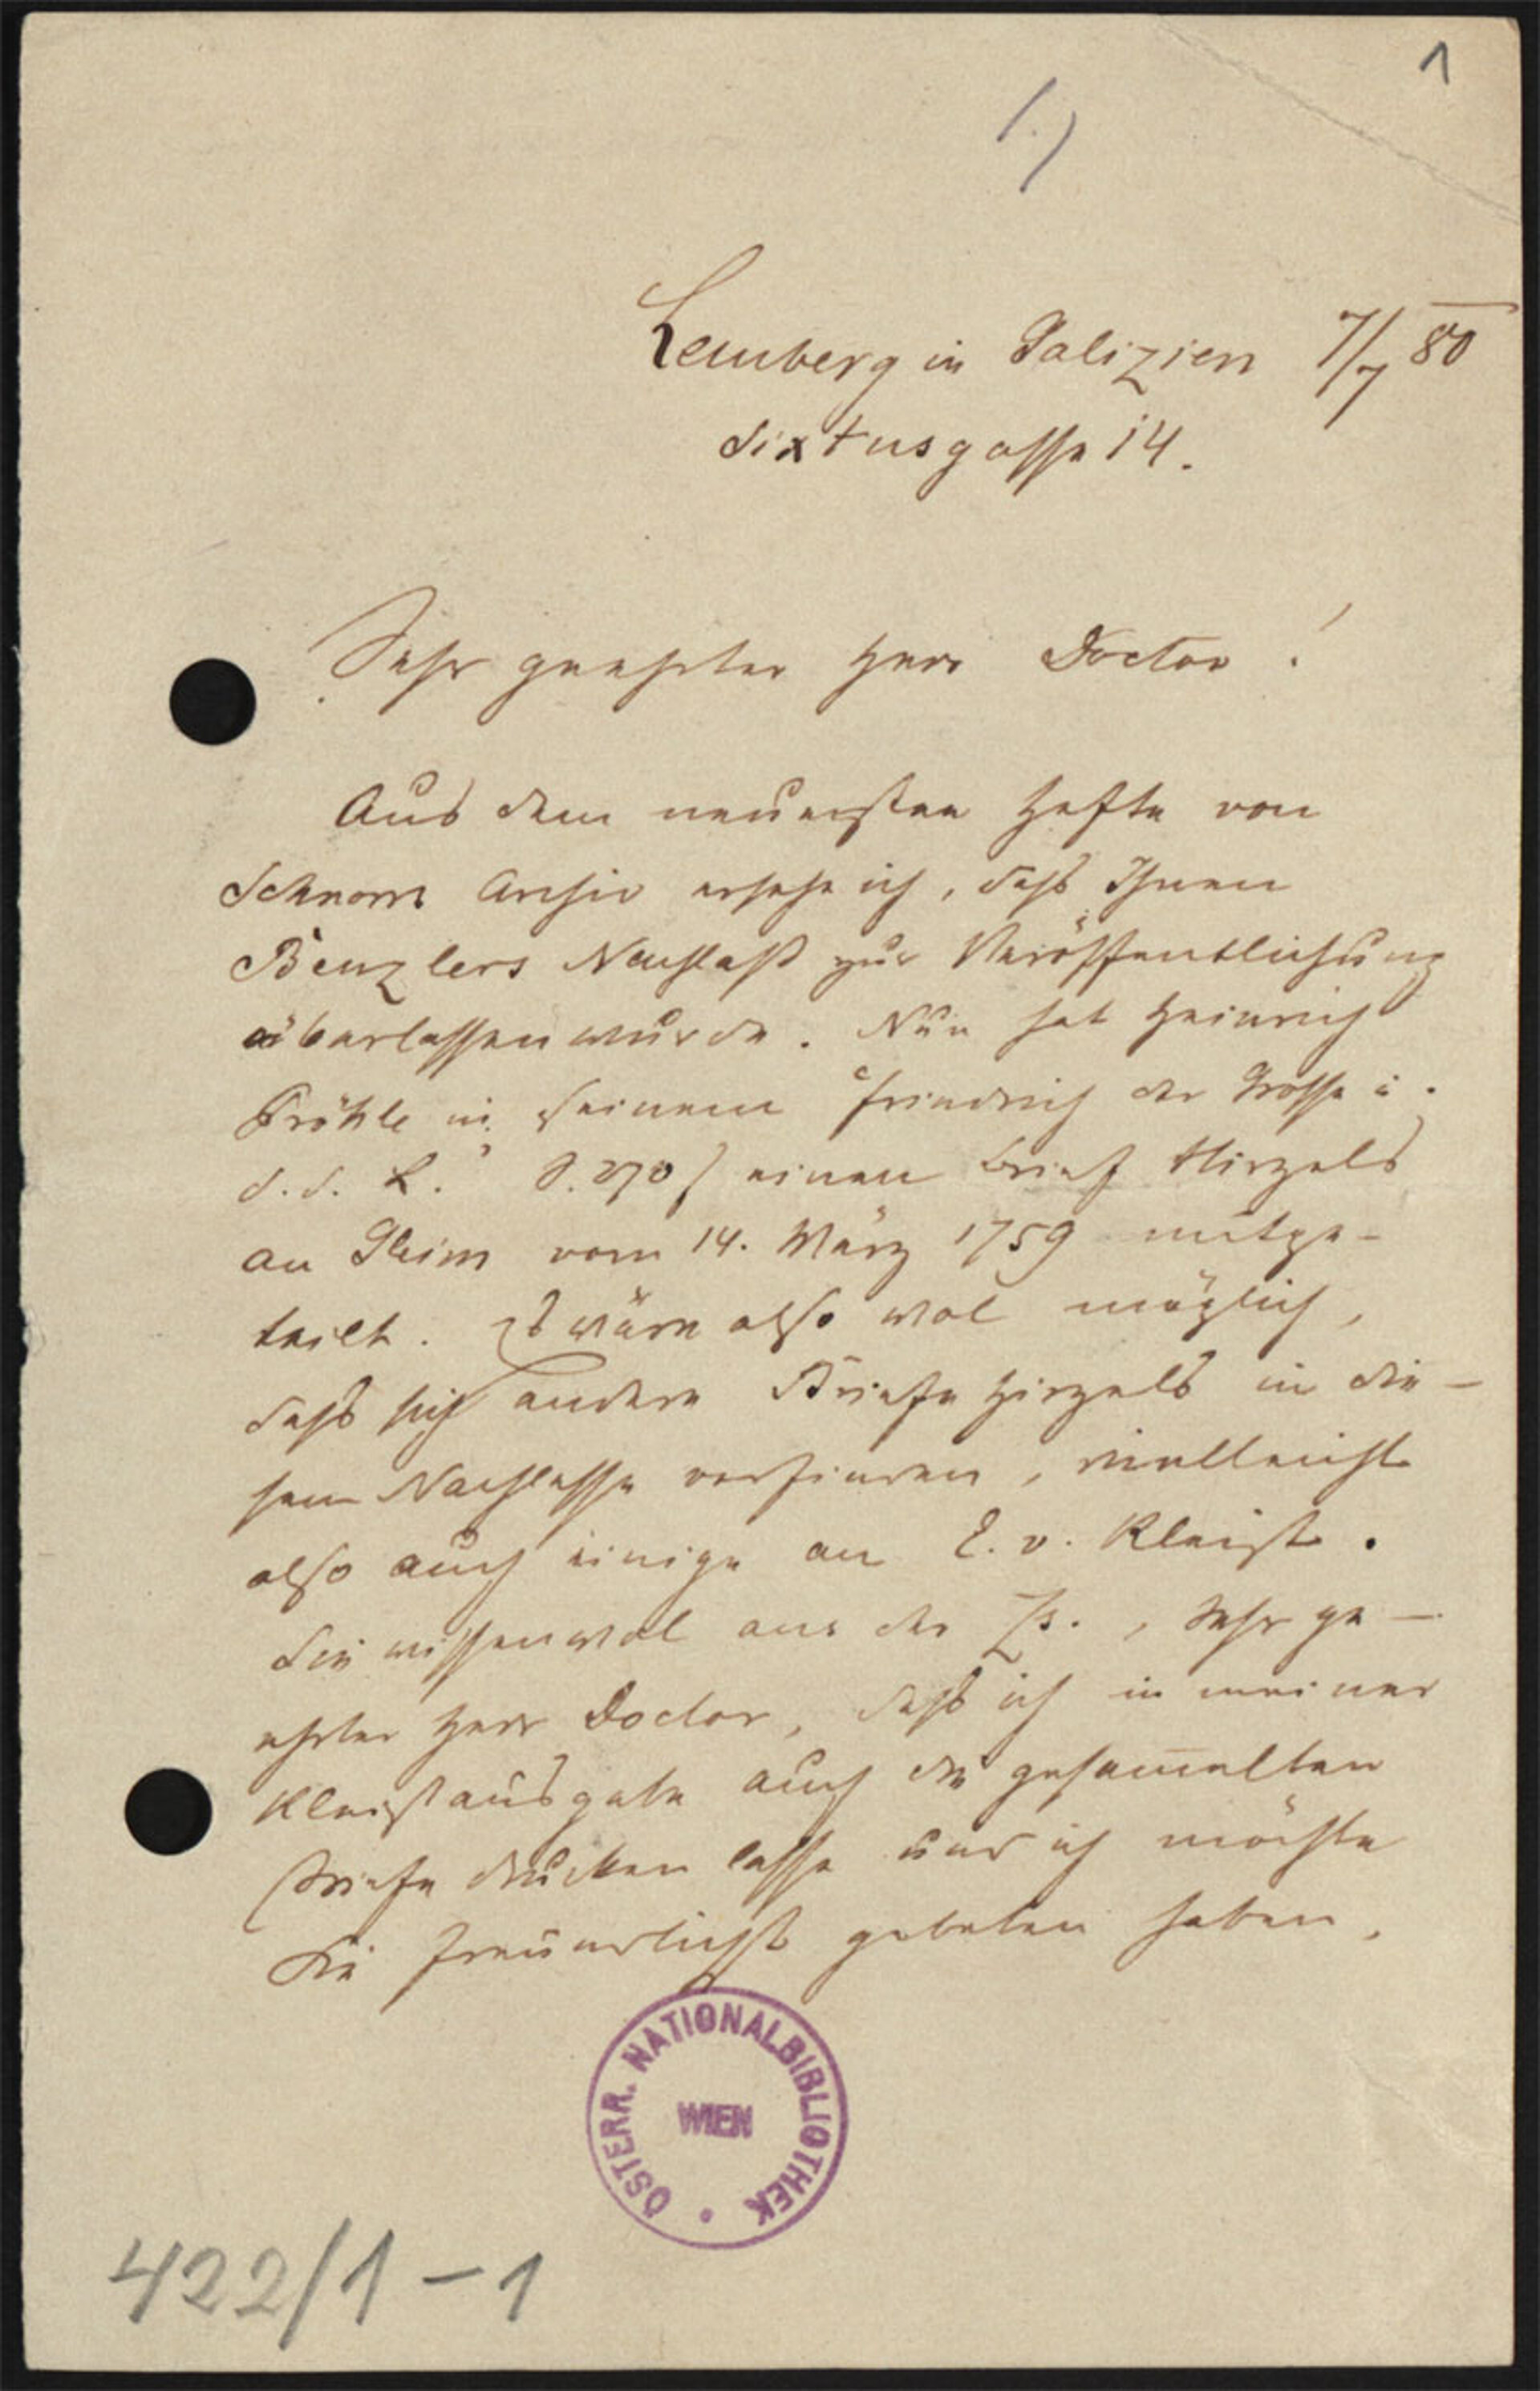 1
1.)
Lemberg in Galizien 7/7 80
Sixtusgasse 14.
Sehr geehrter Herr Doctor!
Aus dem neuersten Hefte von
Schnorrs Archiv ersehe ich, daß Ihnen
Benzlers Nachlaß zur Veröffentlichung
überlassen wurde. Nun hat Heinrich
Pröhle in seinem ‘Friedrich der Große u.
d. d. L.’ S. 270f einen Brief Hirzels
an Gleim vom 14. März 1759 mitge-
teilt. Es wäre also wol möglich,
daß sich andere Briefe Hirzels in die-
sem Nachlasse vorfinden, vielleicht
also auch einige an E. v. Kleist.
Sie wissen wol aus der Zs., sehr ge-
ehrter Herr Doctor, daß ich in meiner
Kleistausgabe auch die gesam̅elten
Briefe drucken lasse und ich möchte
Sie freundlichst gebeten haben,
ÖSTERR. NATIONALBIBLIOTHEK
WIEN
422/1-1